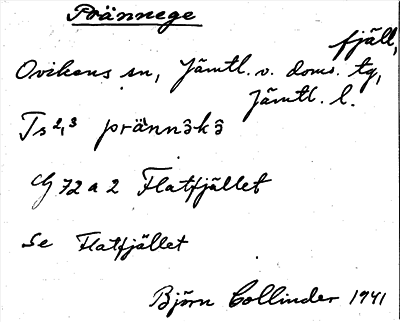 Prännege
fjäll,
Ovikens sn, Jämtl. v. doms. tg,
Jämtl. l.
Ts 2,3 prännə̂kə̂
G 72 a 2 Flatfjället
Se Flatfjället
Björn Collinder 1941